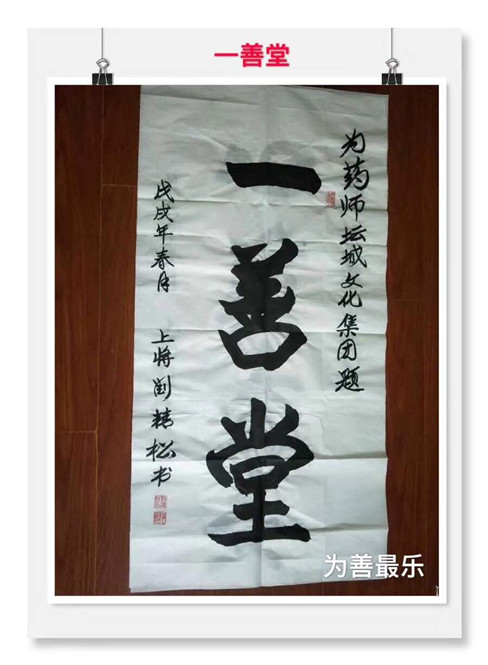 一善堂
为药师坛城文化集团题
一善堂
戊戌年春月
上将刘精松书
为善最乐